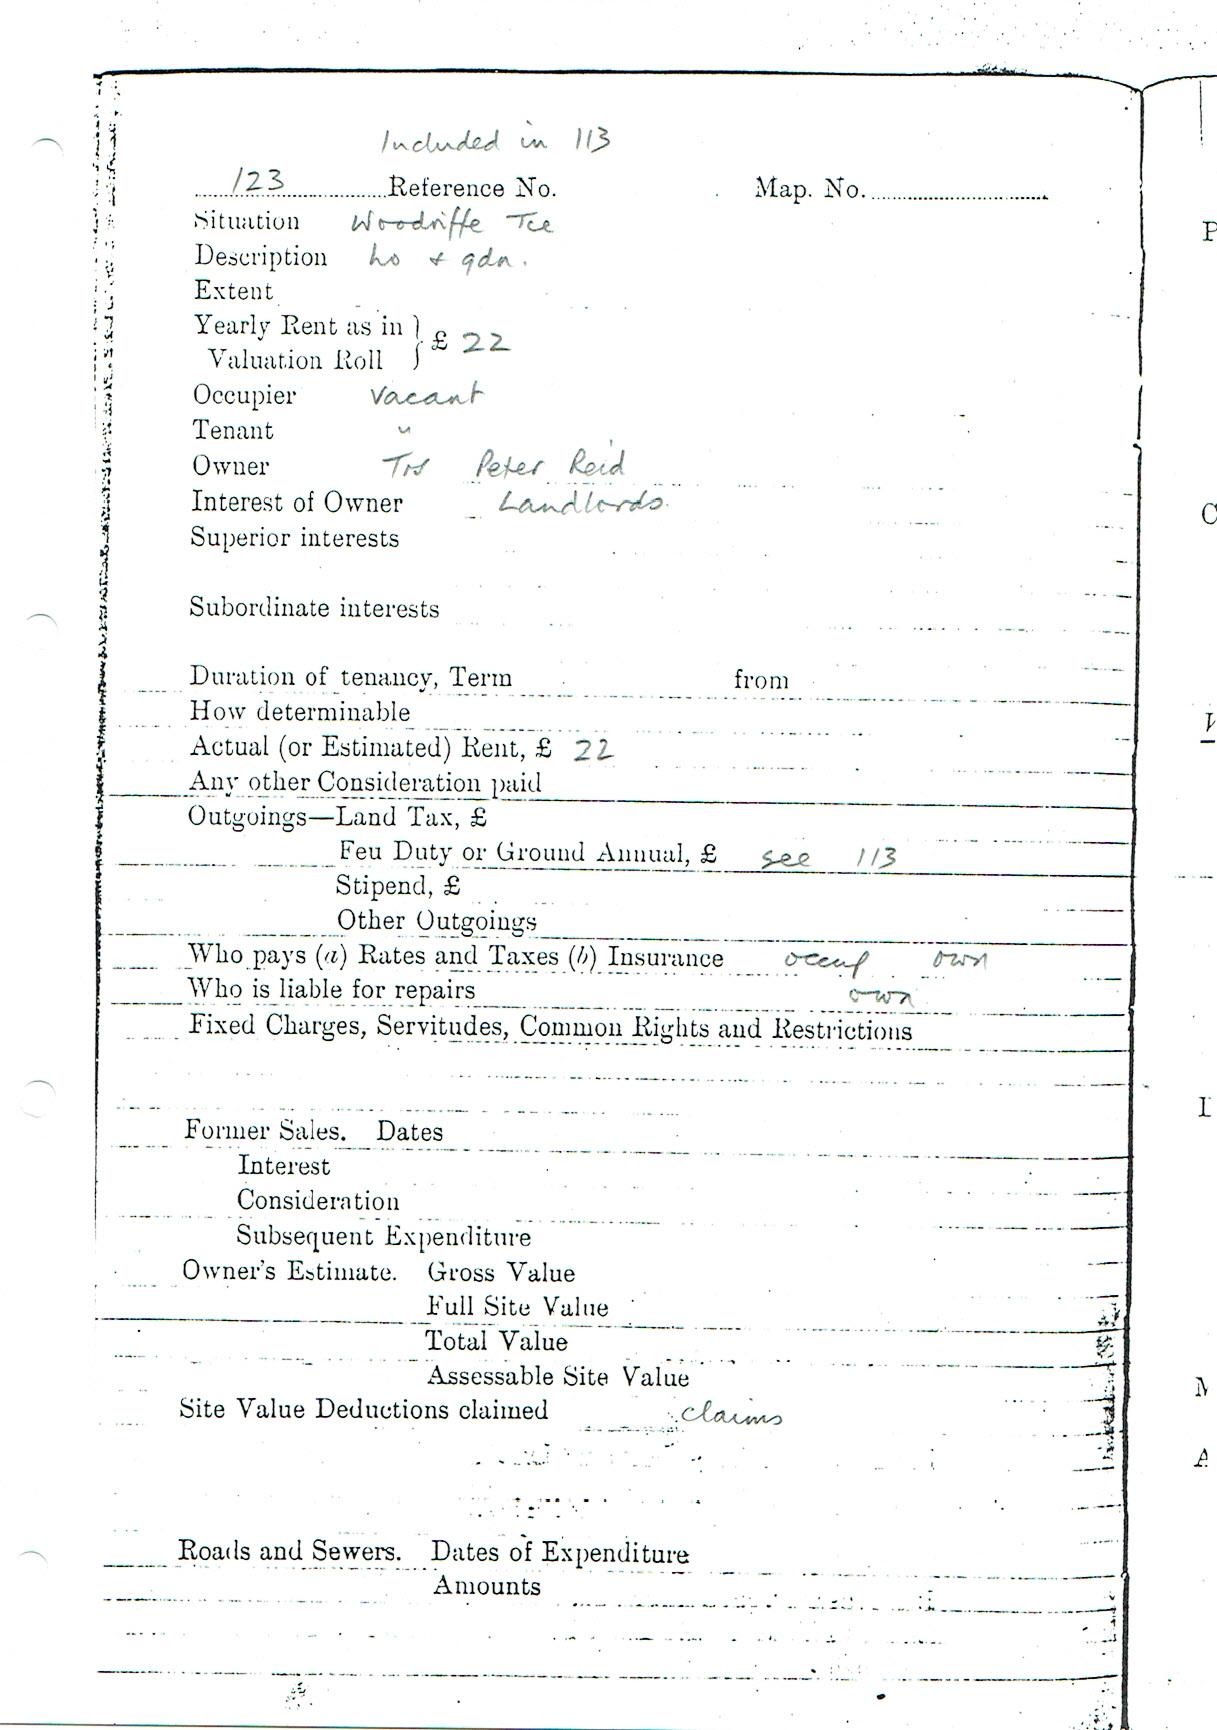 Included in 113
123 Reference No. Map. No.
Situation Woodriffe Tce
Description ho + gdn.
Extent
Yearly Rent as in
Valuation Roll } £ 22
Occupier vacant
Tenant "
Owner Trs Peter Reid
Interest of Owner Landlords.
Superior interests
Subordinate interests
Duration of tenancy, Term from
How determinable
Actual (or Estimated) Rent, £ 22
Any other Consideration paid
Outgoings—Land Tax, £
Feu Duty or Ground Annual, £ see 113
Stipend, £
Other Outgoings
Who pays (a) Rates and Taxes (b) Insurance occup own
Who is liable for repairs own
Fixed Charges, Servitudes, Common Rights and Restrictions
Former Sales. Dates
Interest
Consideration
Subsequent Expenditure
Owner's Estimate. Gross Value
Full Site Value
Total Value
Assessable Site Value
Site Value Deductions claimed claims
Roads and Sewers. Dates of Expenditure
Amounts